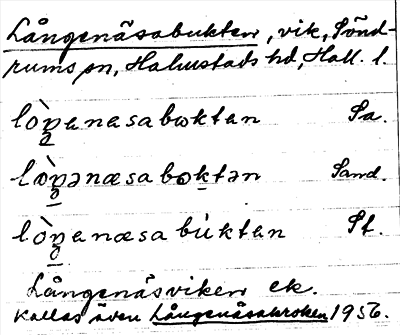 Långenäsabukten, vik, Sönd-
rums sn, Halmstads hd, Hall. l.
lòŋənasabʚktən Sa.
lòŋənæsabʚktən Sand.
lòŋənæsabùktən Sf.
Långenäsviken ek.
Kallas även Långenäsakroken 1956.